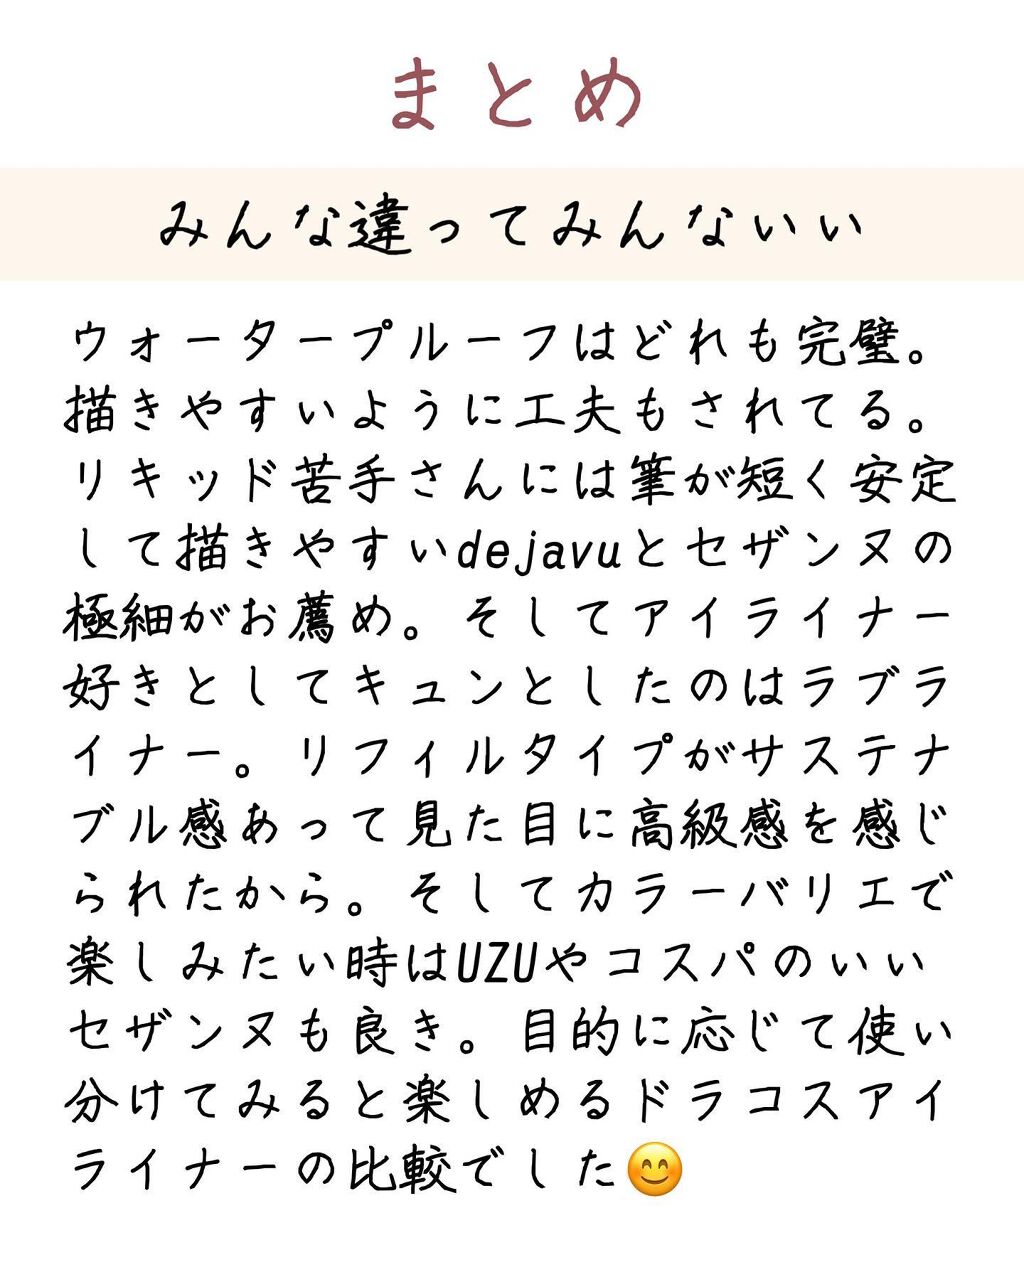 まとめ
みんな違ってみんないい
ウォータープルーフはどれも完璧。
描きやすいように工夫もされてる。
リキッド苦手さんには筆が短く安定
して描きやすいdejavuとセザンヌの
極細がお薦め。そしてアイライナー
好きとしてキュンとしたのはラブラ
イナー。リフィルタイプがサステナ
ブル感あって見た目に高級感を感じ
られたから。そしてカラーバリエで
楽しみたい時はUZUやコスパのいい
セザンヌも良き。目的に応じて使い
分けてみると楽しめるドラコスアイ
ライナーの比較でした😊